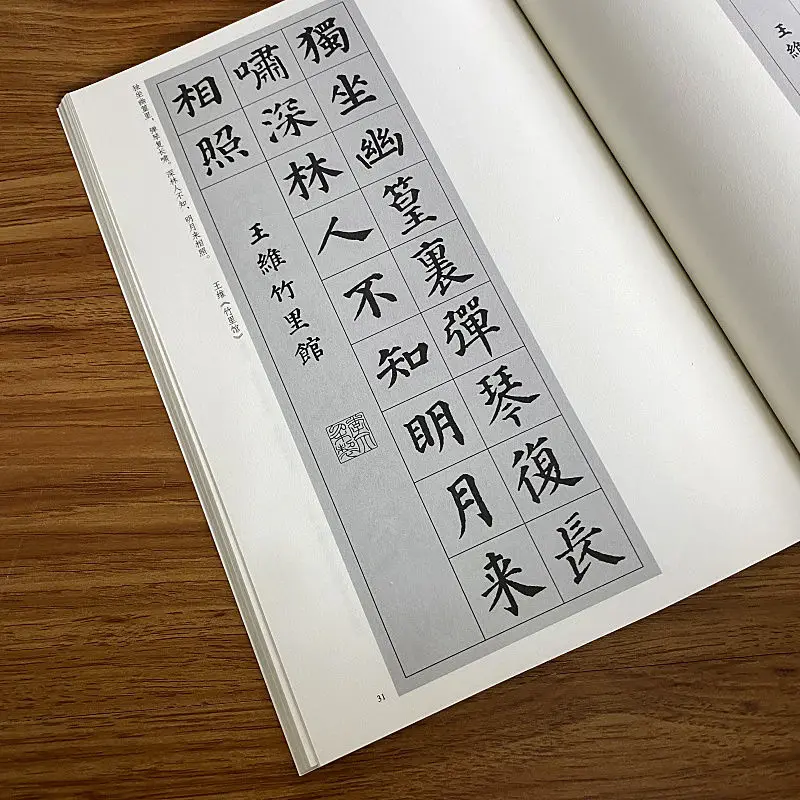 獨坐幽篁裏彈琴復長
嘯深林人不知明月来
相照
王維竹里館
独坐幽篁里，弹琴复长啸。深林人不知，明月来相照。
王维《竹里馆》
31
王維